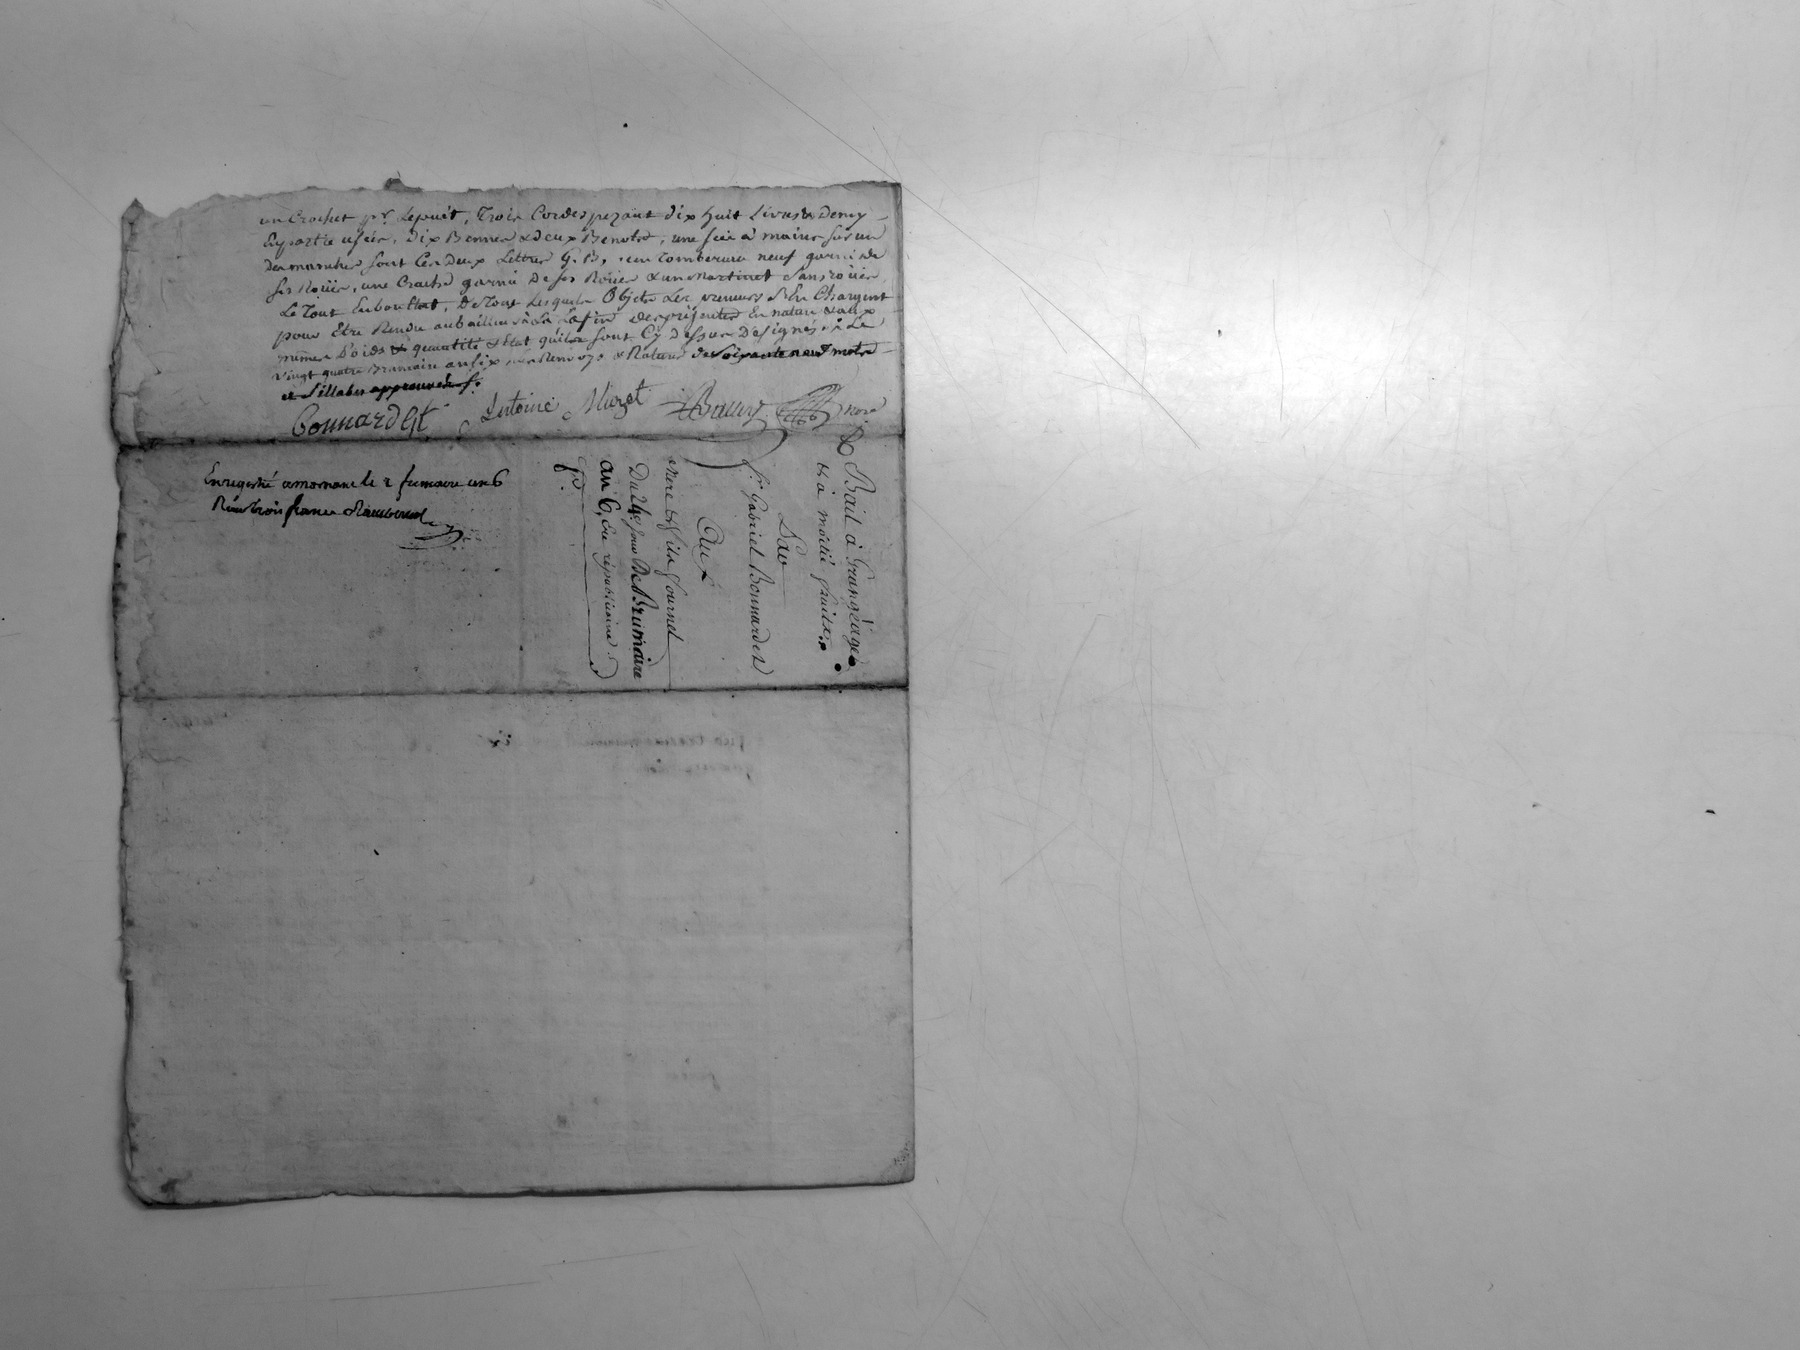 un Crochet pr. Lepuit, Trois Cordes pezant dix huit Livres & Demy
En partie usées, Dix Bennes & deux Benotes, une scie à mains sur un
Des manches sont Les Deux Lettres G. B., un Tombereau neuf garni de
ses Roües, une Crache garnie De ses Roües & un Martinet sans roües
Le Tout En bon Etat, De Tous Lesquels Objets Les preneurs S'En Chargent
pour Etre Rendu au bailleur à La fin des présentes En nature & aux
mêmes Poids & quantité & Etat qu'ils sont Cy Dessus Désignés. Le
vingt quatre Brumaire an six Renvoys & Rature de soixante neuf mots
et Sillabes approuvés
Bonnardet Antoine Miozet
Enregistré a mornant le 2 frimaire an 6
Reçu trois francs
Bail à Grangéage
& à moitié fruits
Par
Sr. Gabriel Bonnardet
Aux
mere & fils Fournel
Du 24e jour De Brumaire
an 6. Ere républicaine